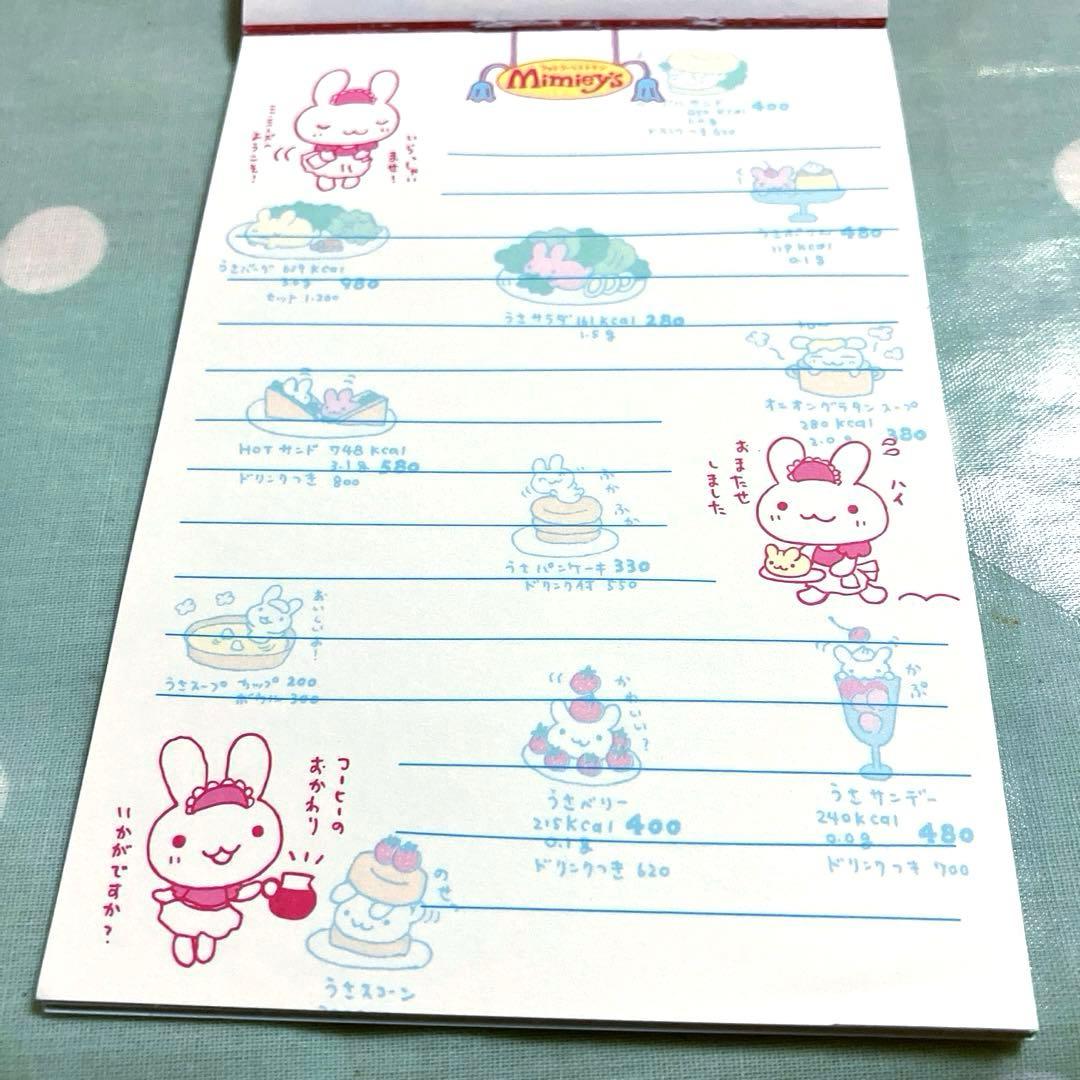 ファミリーレストラン
Mimiey's
ミミーズに
ようこそ!
いらっしゃい
ませ!
サンド 400
ドリンクつき 620
480
119 kcal
0.1g
うさバーグ 659 kcal
980
セット 1.200
うさサラダ 161 kcal 280
1.5g
オニオングラタンスープ
280 kcal
2.0g 380
HOTサンド 748 kcal
3.1g 580
ドリンクつき 800
おまたせ
しました
ハイ
ふか
ふか
うさパンケーキ 330
ドリンク付 550
おいしいよ!
うさスープ カップ 200
ボウル 300
かわいい?
かぷ
うさベリー
215 kcal 400
0.1g
ドリンクつき 620
うさサンデー
240 kcal
0.0g 480
ドリンクつき 700
コーヒーの
おかわり
いかがですか?
のせっ
うさスコーン